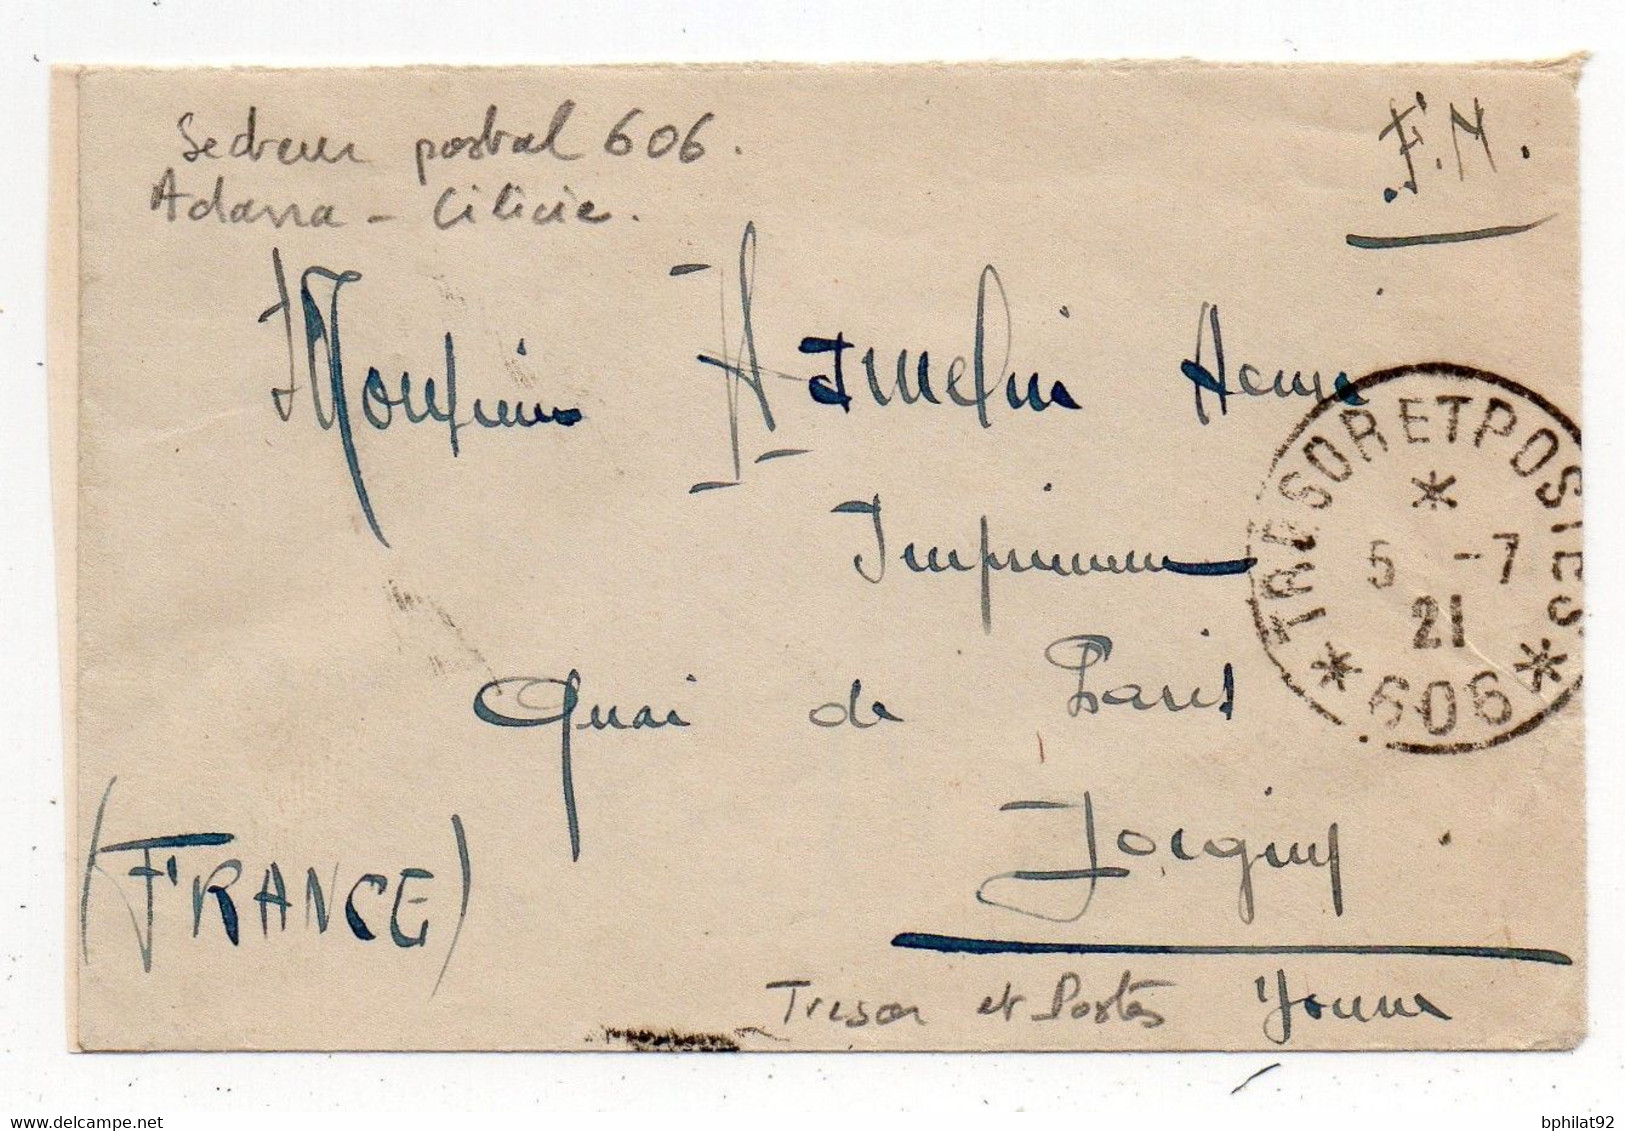 Secteur postal 606.
Adana - Cilicie.
F.M.
Monsieur Hamelin Henri
Imprimeur
Quai de Paris
Joigny
(FRANCE)
Yonne
Tresor et Postes
TRESOR ET POSTES
5 -7
21
*606*
bphilat92